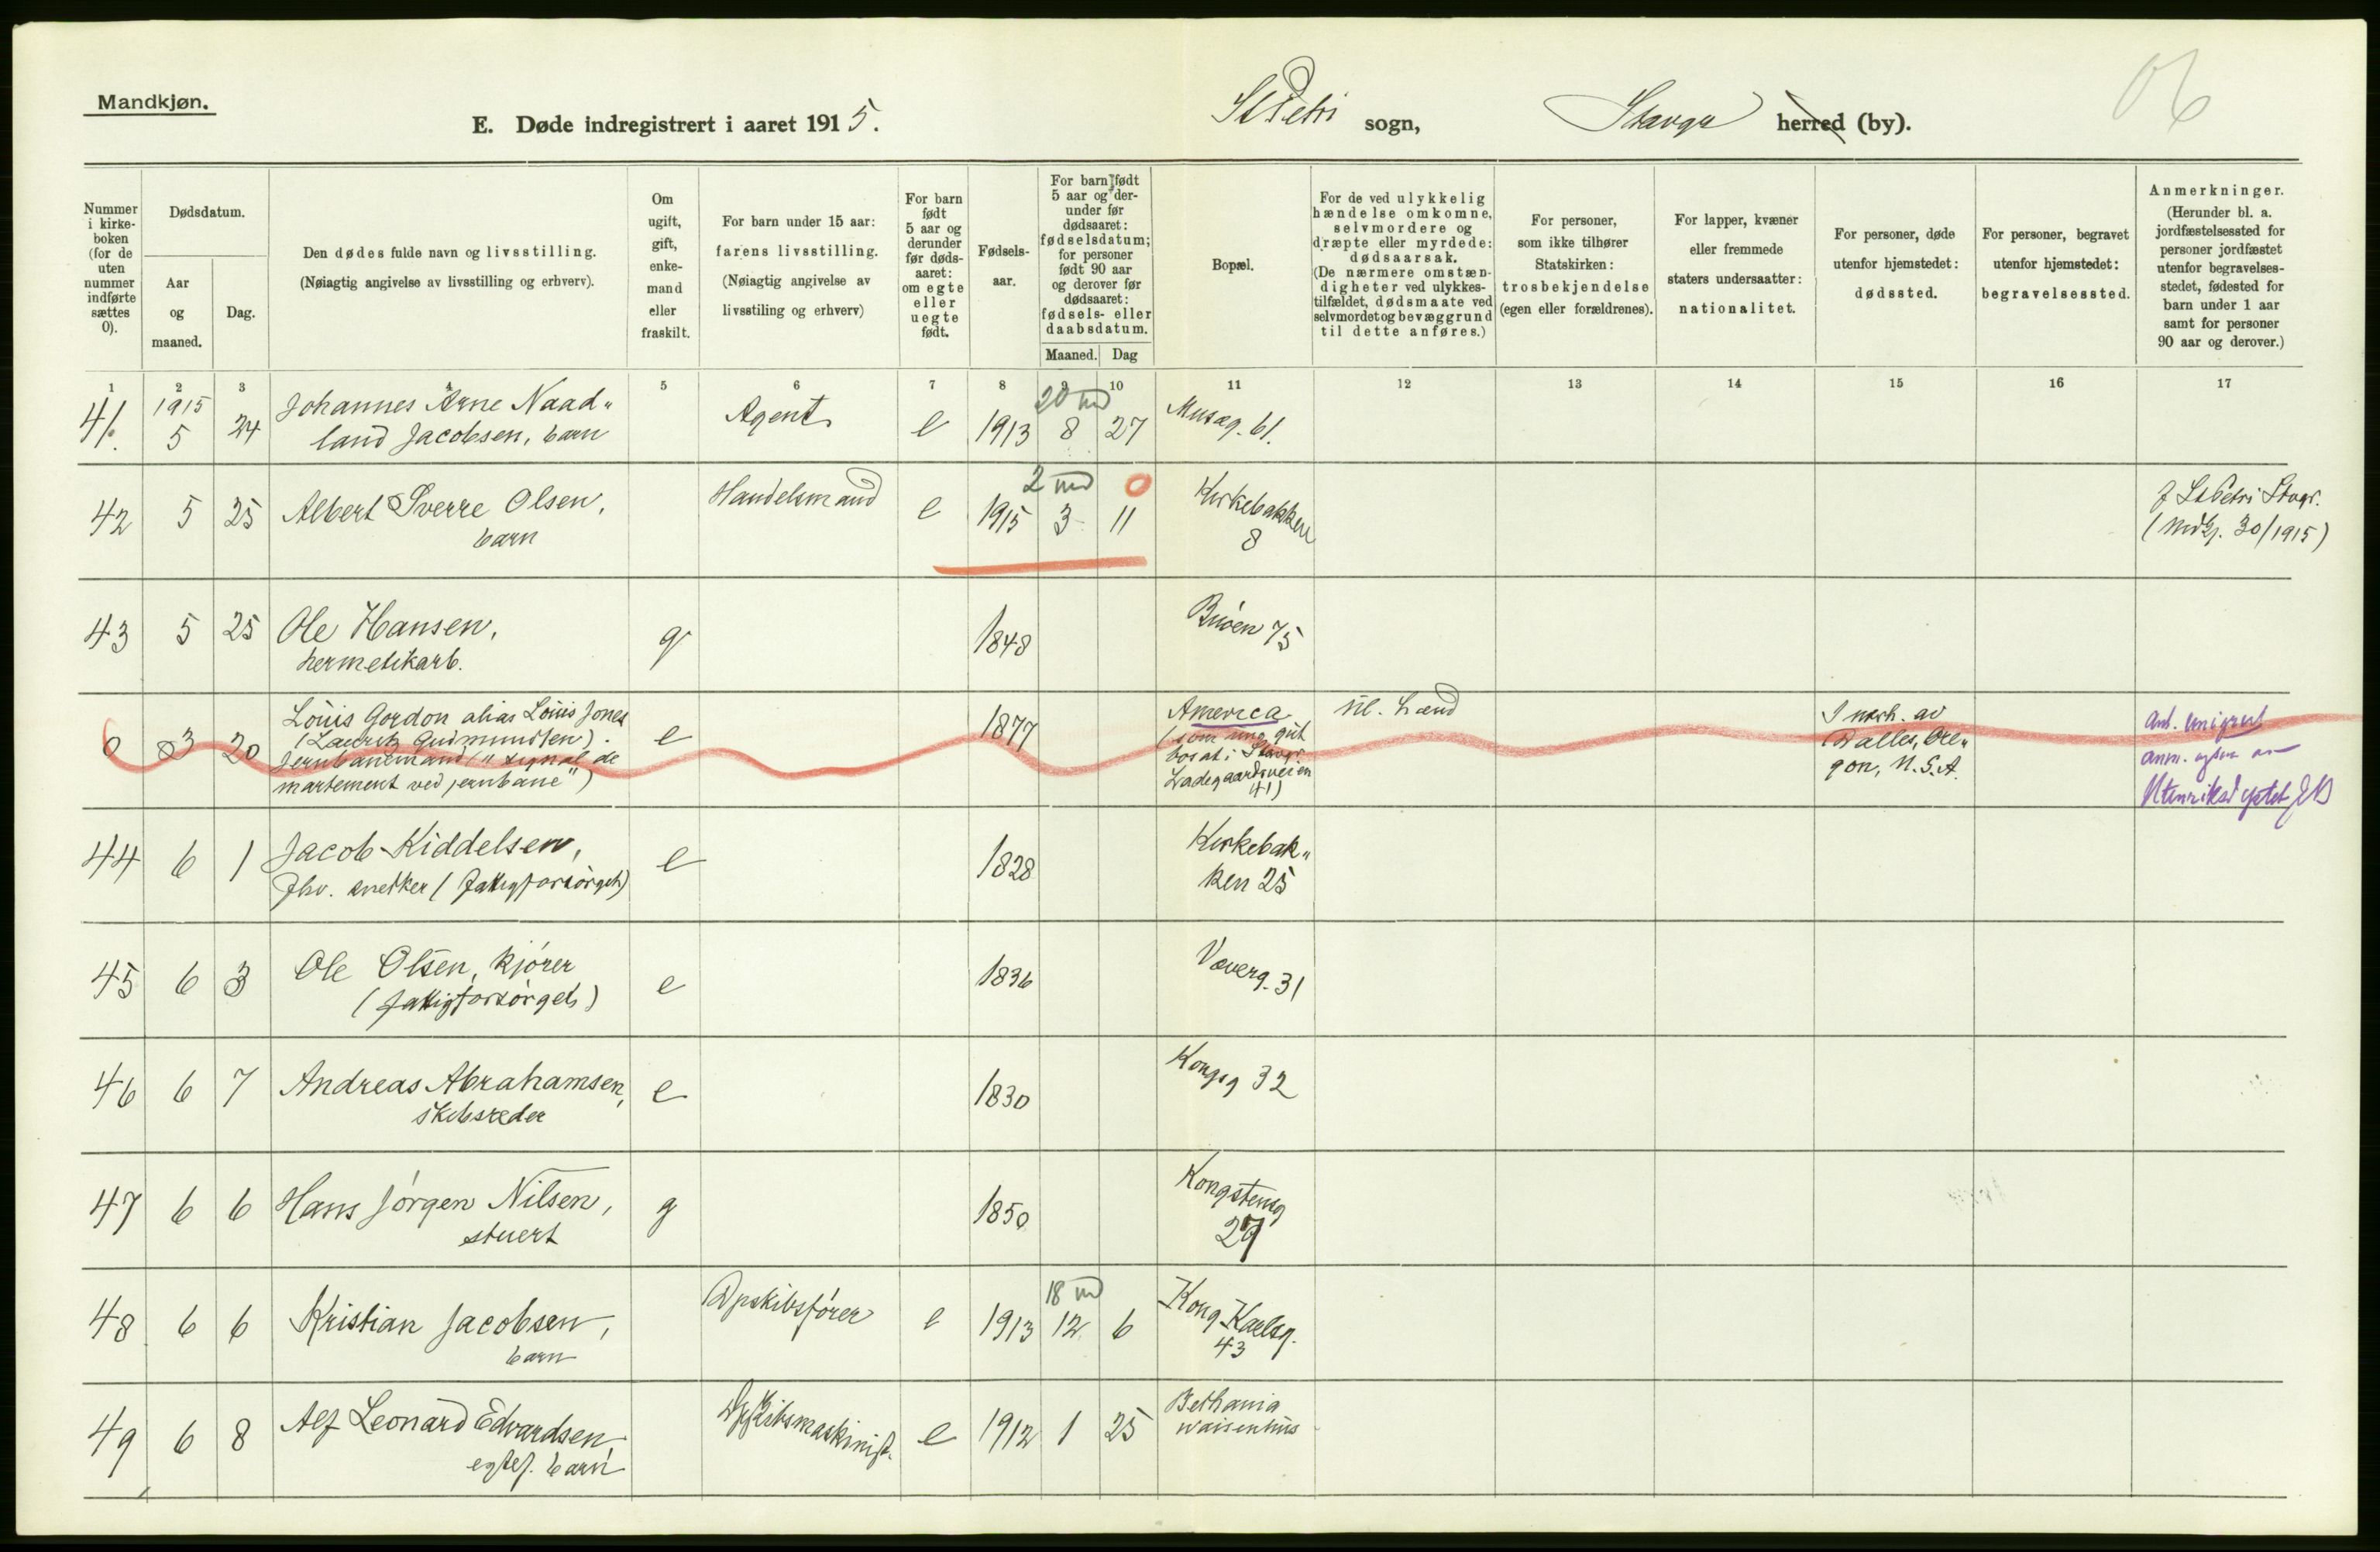 Mandkjøn.
E. Døde indregistrert i aaret 1915.
St Petri sogn,
Stavgr herred (by).
Nummer i kirke-boken (for de uten nummer indførte sættes 0).
Dødsdatum.
Aar og maaned.
Dag.
Den dødes fulde navn og livsstilling.
(Nøiagtig angivelse av livsstilling og erhverv).
Om ugift, gift, enke-mand eller fraskilt.
For barn under 15 aar:
farens livsstilling.
(Nøiagtig angivelse av livsstiling og erhverv)
For barn født 5 aar og derunder før døds-aaret: om egte eller uegte født.
Fødsels-aar.
For barn født 5 aar og der-under før dødsaaret: fødselsdatum; for personer født 90 aar og derover før dødsaaret: fødsels- eller daabsdatum.
Maaned. Dag
Bopæl.
For de ved ulykkelig hændelse omkomne, selvmordere og dræpte eller myrdede: dødsaarsak.
(De nærmere omstæn-digheter ved ulykkes-tilfældet, dødsmaate ved selvmordet og bevæggrund til dette anføres.)
For personer, som ikke tilhører Statskirken: trosbekjendelse (egen eller forældrenes).
For lapper, kvæner eller fremmede staters undersaatter: nationalitet.
For personer, døde utenfor hjemstedet: dødssted.
For personer, begravet utenfor hjemstedet: begravelsessted.
Anmerkninger.
(Herunder bl. a. jordfæstelsessted for personer jordfæstet utenfor begravelses-stedet, fødested for barn under 1 aar samt for personer 90 aar og derover.)
1 2 3 4 5 6 7 8 9 10 11 12 13 14 15 16 17
41. 1915 5 24 Johannes Arne Naad„ Agent e 1913 20 md 8 27 Musæg. 61.
land Jacobsen, barn
42 5 25 Albert Sverre Olsen, Handelsmand e 1915 2 md 3 11 0 Kirkebakken 8 f St Petri Stavgr.
barn (Mdkj. 30/1915)
43 5 25 Ole Hansen, g 1848 Buøen 75
hermetikarb.
0 3 20 Louis Gordon alias Louis Jones e 1877 America
(Lauritz Gudmundsen).
Jernbanemand ("signal de
martement ved jernbane")
(som ung gut
bosat i Stavgr.
Ladegaardsveien
41)
I nærh. av
Dalles, Ore„
gon, U.S.A.
44 6 1 Jacob Kiddelsen, e 1828 Kirkebak„
fhv. snekker (fattigforsørget) ken 25
45 6 3 Ole Olsen, kjører e 1836 Væverg. 31
(fattigforsørget)
46 6 7 Andreas Abrahamsen, e 1830 Kongsg 32
skibsreder
47 6 6 Hans Jørgen Nilsen, g 1850 Kongstensg
stuert 27
48 6 6 Kristian Jacobsen, Dpskibsfører e 1913 18 md 12 6 Kong Karlsg.
barn 43
49 6 8 Alf Leonard Edvardsen, Dpskibsmaskinist. e 1912 1 25 Bethania
egtef. barn waisenhus